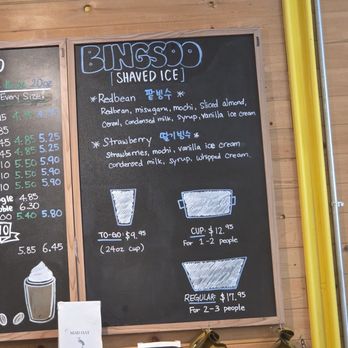 BINGSOO
[SHAVED ICE]
* Redbean 팥빙수 *
Redbean, misugaru, mochi, sliced almond,
cereal, condensed milk, syrup, vanilla ice cream
* Strawberry 딸기빙수 *
Strawberries, mochi, vanilla ice cream
condensed milk, syrup, whipped cream
TO-GO: $9.95
(24oz cup)
CUP: $12.95
For 1-2 people
REGULAR: $17.95
For 2-3 people
O
20oz
Every Size!
5.25
.45 4.85 5.25
.45 4.85 5.25
.10 5.50 5.90
.10 5.50 5.90
.10 5.50 5.90
4.85
6.30
5.40 5.80
5.85 6.45
MAD HAT